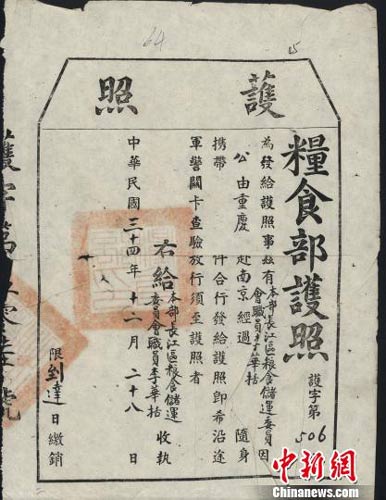 64
5
護照
糧食部護照
護字第506
為發給護照事茲有本部長江區粮食儲運委員會職員李華栝因
公由重慶赴南京經過隨身
携帶件合行發給護照即希沿途
軍警關卡查驗放行須至護照者
右給本部長江區粮食儲運委員會職員李華栝收执
中華民國三十四年十二月二十八日
限到達日繳銷
護字第
號
中新网
Chinanews.com